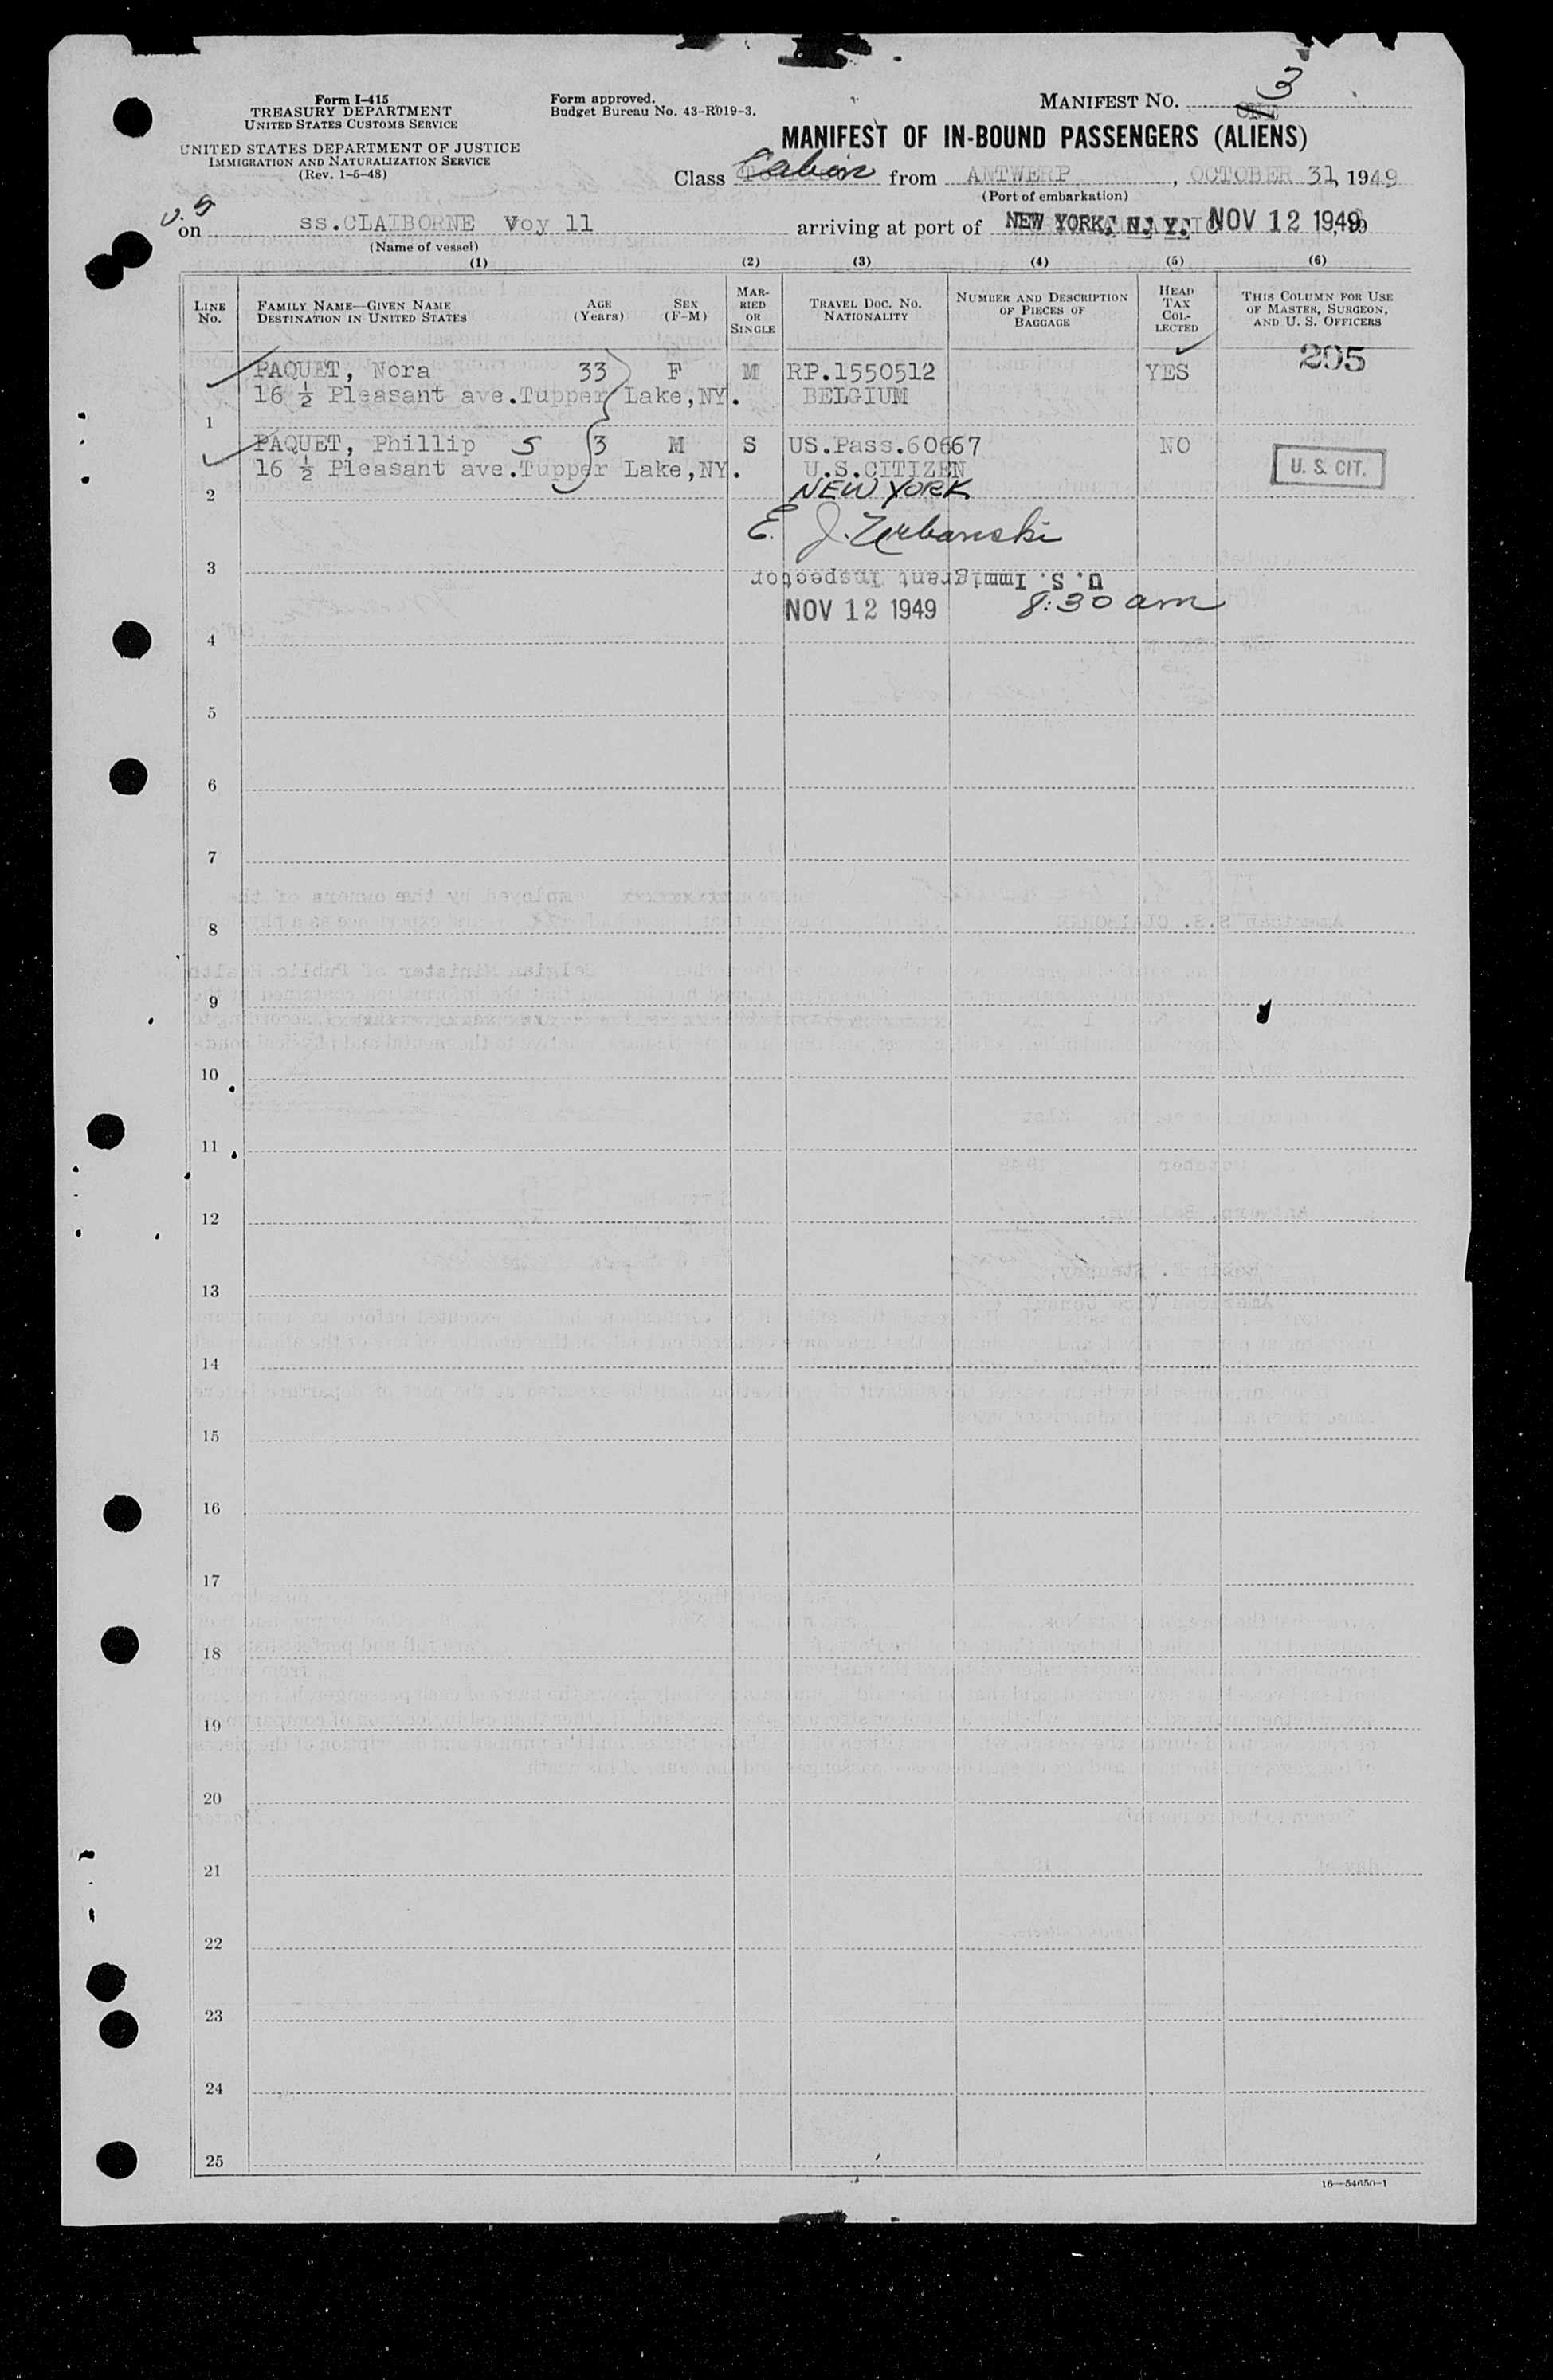 Form I-415
TREASURY DEPARTMENT
UNITED STATES CUSTOMS SERVICE
UNITED STATES DEPARTMENT OF JUSTICE
IMMIGRATION AND NATURALIZATION SERVICE
(Rev. 1-5-48)
Form approved.
Budget Bureau No. 43-R019-3.
MANIFEST NO. 3
MANIFEST OF IN-BOUND PASSENGERS (ALIENS)
Class Cabin from ANTWERP, OCTOBER 31, 1949
(Port of embarkation)
on ss.CLAIBORNE Voy 11 arriving at port of NEW YORK, N. Y. NOV 12 1949
(Name of vessel)
(1) (2) (3) (4) (5) (6)
LINE No. FAMILY NAME—GIVEN NAME DESTINATION IN UNITED STATES AGE (Years) SEX (F-M) MARRIED OR SINGLE TRAVEL DOC. NO. NATIONALITY NUMBER AND DESCRIPTION OF PIECES OF BAGGAGE HEAD TAX COLLECTED THIS COLUMN FOR USE OF MASTER, SURGEON, AND U. S. OFFICERS
PAQUET, Nora 33 F M RP.1550512 YES 295
16 ½ Pleasant ave.Tupper Lake,NY. BELGIUM
1
PAQUET, Phillip 5 3 M S US.Pass.60667 NO U. S. CIT.
16 ½ Pleasant ave.Tupper Lake,NY. U.S.CITIZEN
2 NEW YORK
E. J. Urbanski
3
U. S. Immigrant Inspector
NOV 12 1949 8:30 am
4
5
6
7
8
9
10
11
12
13
14
15
16
17
18
19
20
21
22
23
24
25
16—54650-1